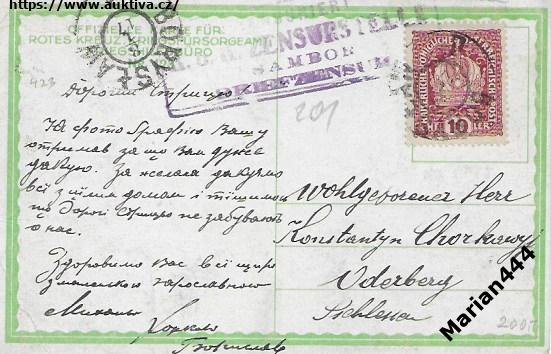 https://www.auktiva.cz
OFFIZIELLE KARTE FÜR:
ROTES KREUZ, KRIEGSFÜRSORGEAMT
KRIEGSHILFSBÜRO
BORYSŁAW
17
ZENSURSTELLE
SAMBOR
BRIEFZENSUR
423
201
KAISERLICHE KÖNIGLICHE ÖSTERREICHISCHE POST
10 HELLER
Дорогі Стрицю
За фотографію Вашу
отримав за що Вам дуже
дякую. За желаня дякуємо
всі з цілим домом і тішимось
що Дорогі Стрицьо не забувають
о нас.
Здоровимо Вас всі щиро
з малим Ярославом
Михась
Бориславъ
Wohlgeborener Herr
Konstantyn Chorkawy
Oderberg
Schlesien
Marian444
2007